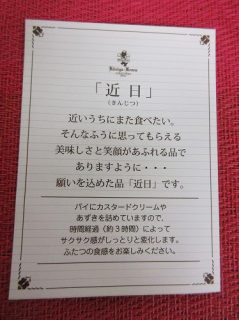 「近日」
（きんじつ）
近いうちにまた食べたい。
そんなふうに思ってもらえる
美味しさと笑顔があふれる品で
ありますように・・・
願いを込めた品「近日」です。
パイにカスタードクリームや
あずきを詰めていますので、
時間経過（約３時間）によって
サクサク感がしっとりと変化します。
ふたつの食感をお楽しみください。